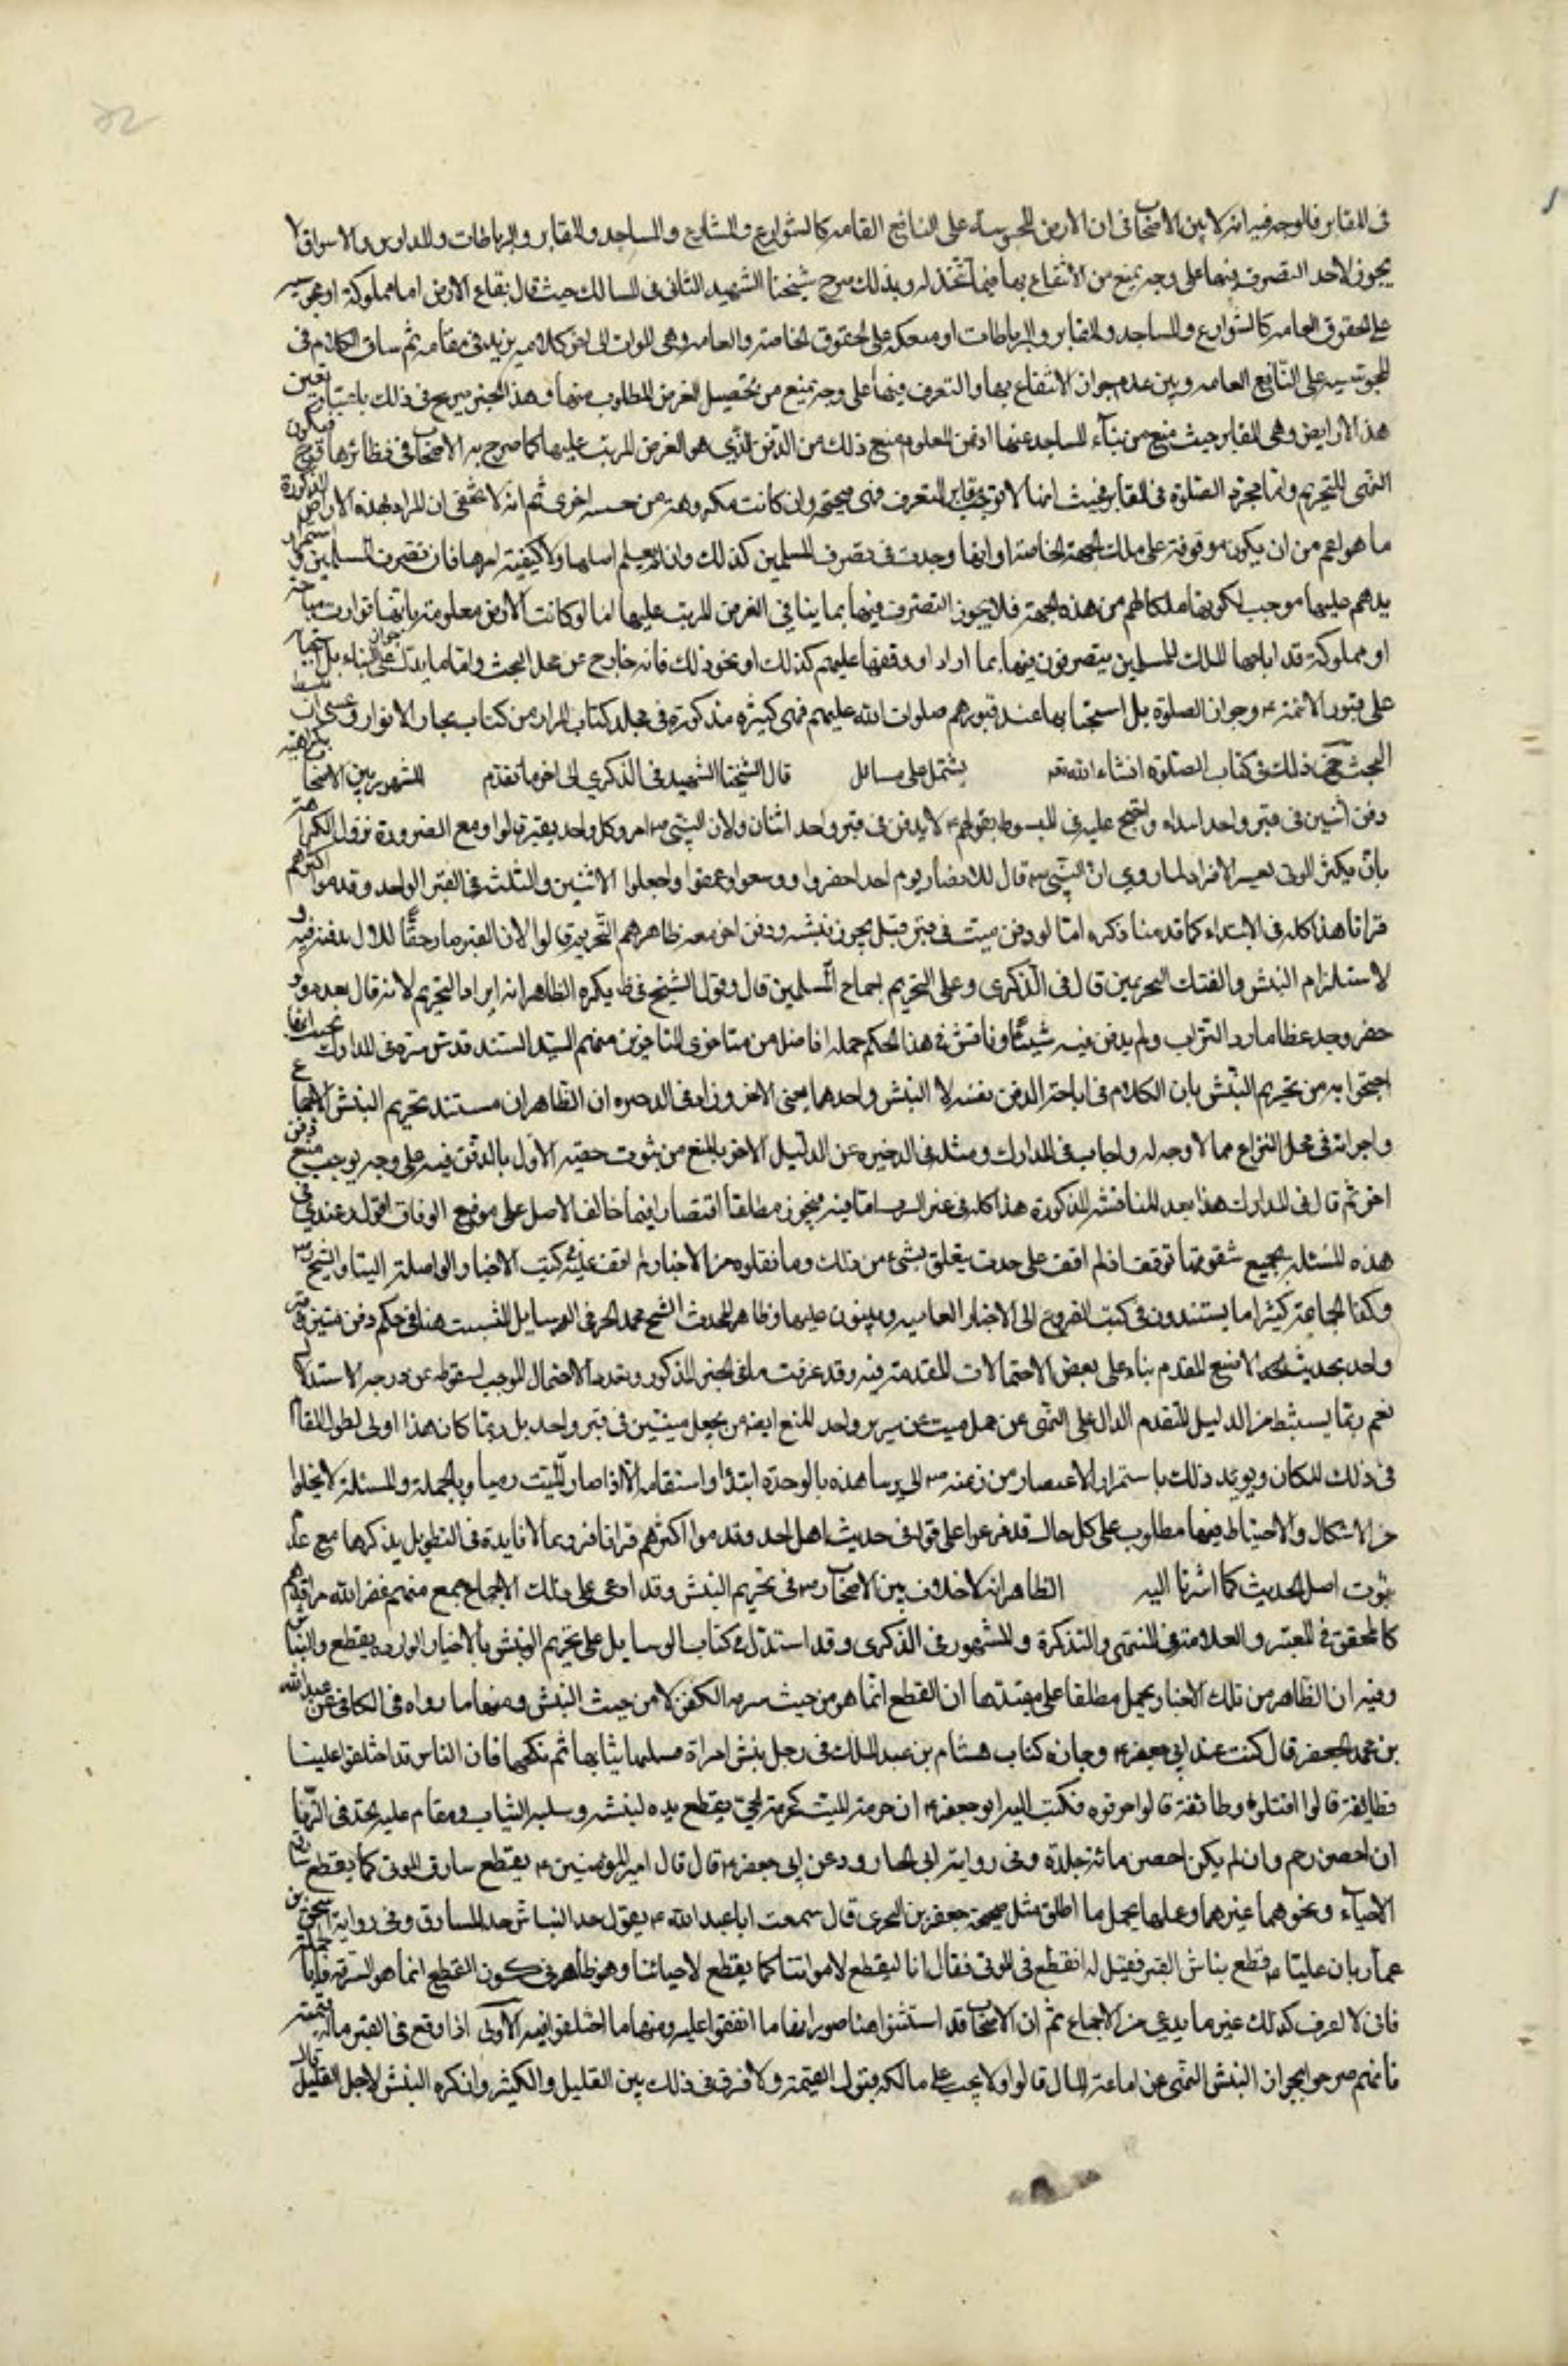 في المقابر فالوجه فيه انه لا بين الاصحاب في ان الارض المحبوسة على المنافع العامه كالشوارع والمشارع والمساجد والمقابر والرباطات والمدارس والاسواق لا
يجوز لاحد التصرف فيها على وجه يمنع من الانتفاع بها فيما اتخذ له وبذلك صرح شيخنا الشهيد الثاني في المسالك حيث قال بقاع الارض اما مملوكة او محبوسه
على الحقوق العامه كالشوارع والمساجد والمقابر والرباطات او منفكه على الحقوق الخاصة والعامه وهي الموات الى اخر كلامه زيد في مقامه ثم ساق الكلام في
المحبوسه على المنافع العامه وبين عدم جواز الانتفاع بها والتصرف فيها على وجه يمنع من تحصيل الغرض المطلوب منها وهذا الخبر صريح في ذلك باعتبار بعض
هذا الارايض وهي المقابر حيث منع من بناء المساجد عنها اذ من المعلوم منع ذلك من الدفن الذي هو الغرض المرتب عليها كما صرح به الاصحاب في نظائرها فيكون
النهي للتحريم واما مجرد الصلوة في المقابر فحيث انها لا توجب التصرف فهي صحيحة وان كانت مكروهة من جهه اخرى ثم انه لا يخفى ان المراد بهذه الاراضي المذكورة
ما هو اعم من ان يكون موقوفة على تلك الجهة الخاصة او انها وجدت في تصرف المسلمين كذلك وان لم يعلم اصلها ولا كيفية امرها فان تصرف المسلمين و استمرار
يدهم عليها موجب لكونها ملكا لهم من هذه الجهة فلا يجوز التصرف فيها بما ينافي الغرض المرتب عليها اما لو كانت الارض معلومة بانها موات مباحة
او مملوكة قد اباحها المالك للمسلمين يتصرفون فيها بما اراد او وقفها عليهم كذلك او نحو ذلك فانه خارج عن محل البحث واما ما يدل على جواز البناء بل استحبابه
على قبور الائمة ع وجواز الصلوة بل استحبابها عند قبورهم صلوات الله عليهم فهي كثيره مذكورة في مجلد كتاب المزار من كتاب بحار الانوار وعسى ان نبسط
البحث في ذلك في كتاب الصلوة انشاء الله تعه يشتمل على مسائل قال شيخنا الشهيد في الذكرى الى اخر ما تقدم المشهور بين الاصحاب كراهة
دفن اثنين في قبر واحد ابتداء واحتج عليه في المبسوط بقولهم ع لا يدفن في قبر واحد اثنان ولان النبي ص امر كل واحد بقبر قالوا ومع الضرورة تزول الكراهة
بان يكثر الموتى يعسر الافراد لما روي ان النبي ص قال للانصار يوم احد احفروا ووسعوا وعمقوا واجعلوا الاثنين والثلثه في القبر الواحد وقدموا اكثرهم
قرانا هذا كله في الابتداء كما قدمنا ذكره اما لو دفن ميت في قبر قبل يجوز نبشه ودفن اخر معه ظاهرهم التحريم قالوا لان القبر صار حقا للاول بدفنه فيه و
لاستلزام النبش والهتك المحرمين قال في الذكرى وعلى التحريم اجماع المسلمين قال وقول الشيخ في ط يكره الظاهر انه اراد التحريم لانه قال بعده ولو
حفر وجد عظاما رد التراب ولم يدفن فيه شيئا وناقش في هذا الحكم جملة افاضل من متاخري المتاخرين منهم السيد السند قدس سره في المدارك
احتجوا به من تحريم النبش بان الكلام في اباحة الدفن نفسه لا النبش واحدهما يعني الاخر وزاد في الذخيره ان الظاهر ان مستند تحريم النبش الاجماع
واجرائه في محل النزاع مما لا وجه له واجاب في المدارك ومثله في الذخيره عن الدليل الاخر بالمنع من ثبوت حقية الاول بالدفن فيه على وجه يوجب منع دفن
اخر ثم قال في المدارك هذا بعد المناقشه المذكورة هذا كله في غير السرب اما فيه فيجوز مطلقا اقتصارا فيما خالف الاصل على موضع الوفاق اقول وعندي في
هذه المسئلة بجميع شقوقها توقف اذ لم اقف على حديث يتعلق بشيء من ذلك وما نقلوه من الاخبار لم اقف عليه في كتب الاخبار الواصلة الينا والشيخ ره
وكذا الجماعة كثيرا ما يستندون في كتب الفروع الى الاخبار العاميه ويبنون عليها وظاهر المحدث الشيخ محمد الحر في الوسايل التمسك هنا في حكم دفن ميتين في قبر
واحد بحديث الاصبغ المقدم بناء على بعض الاحتمالات المتقدمة فيه وقد عرفت ما في الخبر المذكور وتعدد الاحتمال الموجب لسقوطه عن درجه الاستدلال
نعم ربما يستنبط من الدليل المتقدم الدال على النهي عن حمل ميت على سرير واحد المنع ايضا من جعل ميتين في قبر واحد بل ربما كان هذا اولى لطول المقام
في ذلك المكان ويؤيد ذلك باستمرار الاعصار من زمنه ص الى يومنا هذه بالوحدة ابتداء واستقامة الا اذا صار الميت رميما وبالجملة والمسئلة لا يخلوا
من الاشكال والاحتياط فيها مطلوب على كل حال قد فرعوا على قوله في حديث اهل احد وقدموا اكثرهم قرانا فروعا لا فايدة في التطويل بذكرها مع عدم
ثبوت اصل الحديث كما اشرنا اليه الظاهر انه لا خلاف بين الاصحاب رض في تحريم النبش وقد ادعى على ذلك الاجماع جمع منهم غفر الله مراقدهم
كالمحقق في المعتبر والعلامة في المنتهى والتذكرة والشهيد في الذكرى وقد استدل في كتاب الوسايل على تحريم النبش بالاخبار الوارده بقطع النباش
وفيه ان الظاهر من تلك الاخبار بحمل مطلقها على مقيدها ان القطع انما هو من حيث سرقه الكفن لا من حيث النبش ومنها ما رواه في الكافي عن عبد الله
بن محمد الجعفي قال كنت عند ابي جعفر ع وجاءه كتاب هشام بن عبد الملك في رجل نبش امراة فسلبها ثيابها ثم نكحها فان الناس قد اختلفوا علينا
فطايفة قالوا اقتلوه وطائفة قالوا احرقوه فكتب اليه ابو جعفر ع ان حرمة الميت كحرمة الحي يقطع يده لنبشه وسلبه الثياب ويقام عليه الحد في الزنا
ان احصن رجم وان لم يكن احصن مائة جلدة وفي رواية ابي الجارود عن ابي جعفر ع قال قال امير المؤمنين ع يقطع سارق الموتى كما يقطع سارق
الاحياء ونحوهما غيرهما وعليها يحمل ما اطلق مثل صحيحة حفص بن البختري قال سمعت ابا عبد الله ع يقول حد النباش حد السارق وفي رواية اسحق بن
عمار بان عليا ع قطع نباش القبر فقيل له اتقطع في الموتى فقال انا لنقطع لامواتنا كما يقطع لاحيائنا وهو ظاهر في كون القطع انما هو للسرقة
فاني لا اعرف كذلك غير ما يدعى من الاجماع ثم ان الاصحاب قد استثنوا هنا صورا منها ما اتفقوا عليه ومنها ما اختلفوا فيه الاولى اذا وقع في القبر ماله قيمة
فانهم صرحوا بجواز النبش للنهي عن اضاعة المال قالوا ولا يجب على مالكه قبول القيمة ولا فرق في ذلك بين القليل والكثير وان كره النبش لاجل القليل قال